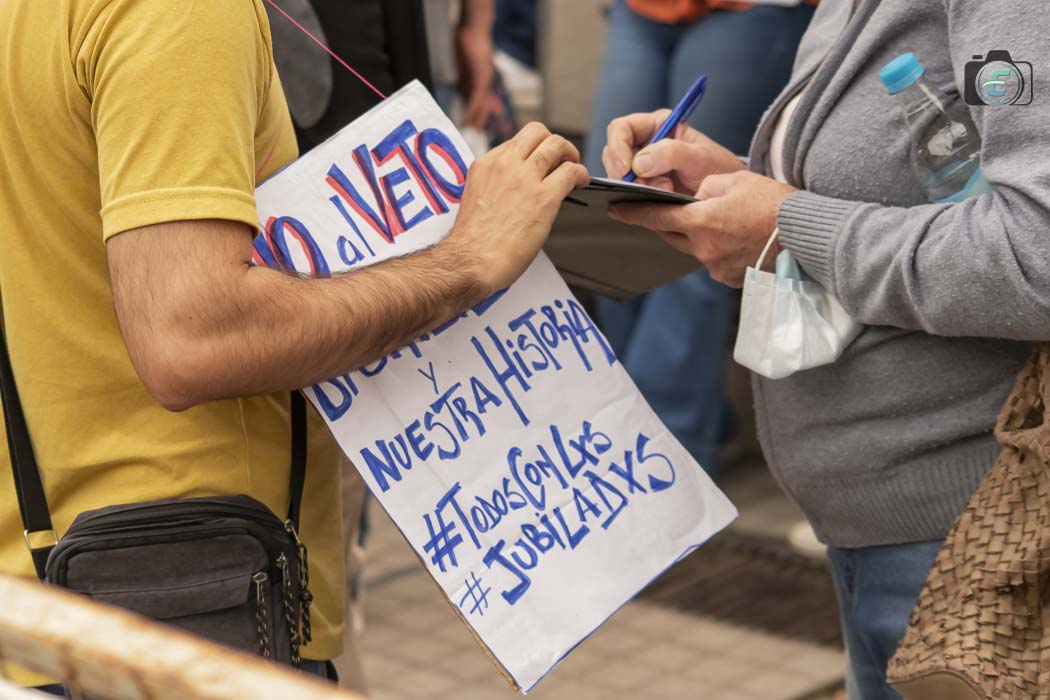 NO al VETO
y
NUESTRA HISTORIA
#TODOSCONLXS
JUBILADXS
#